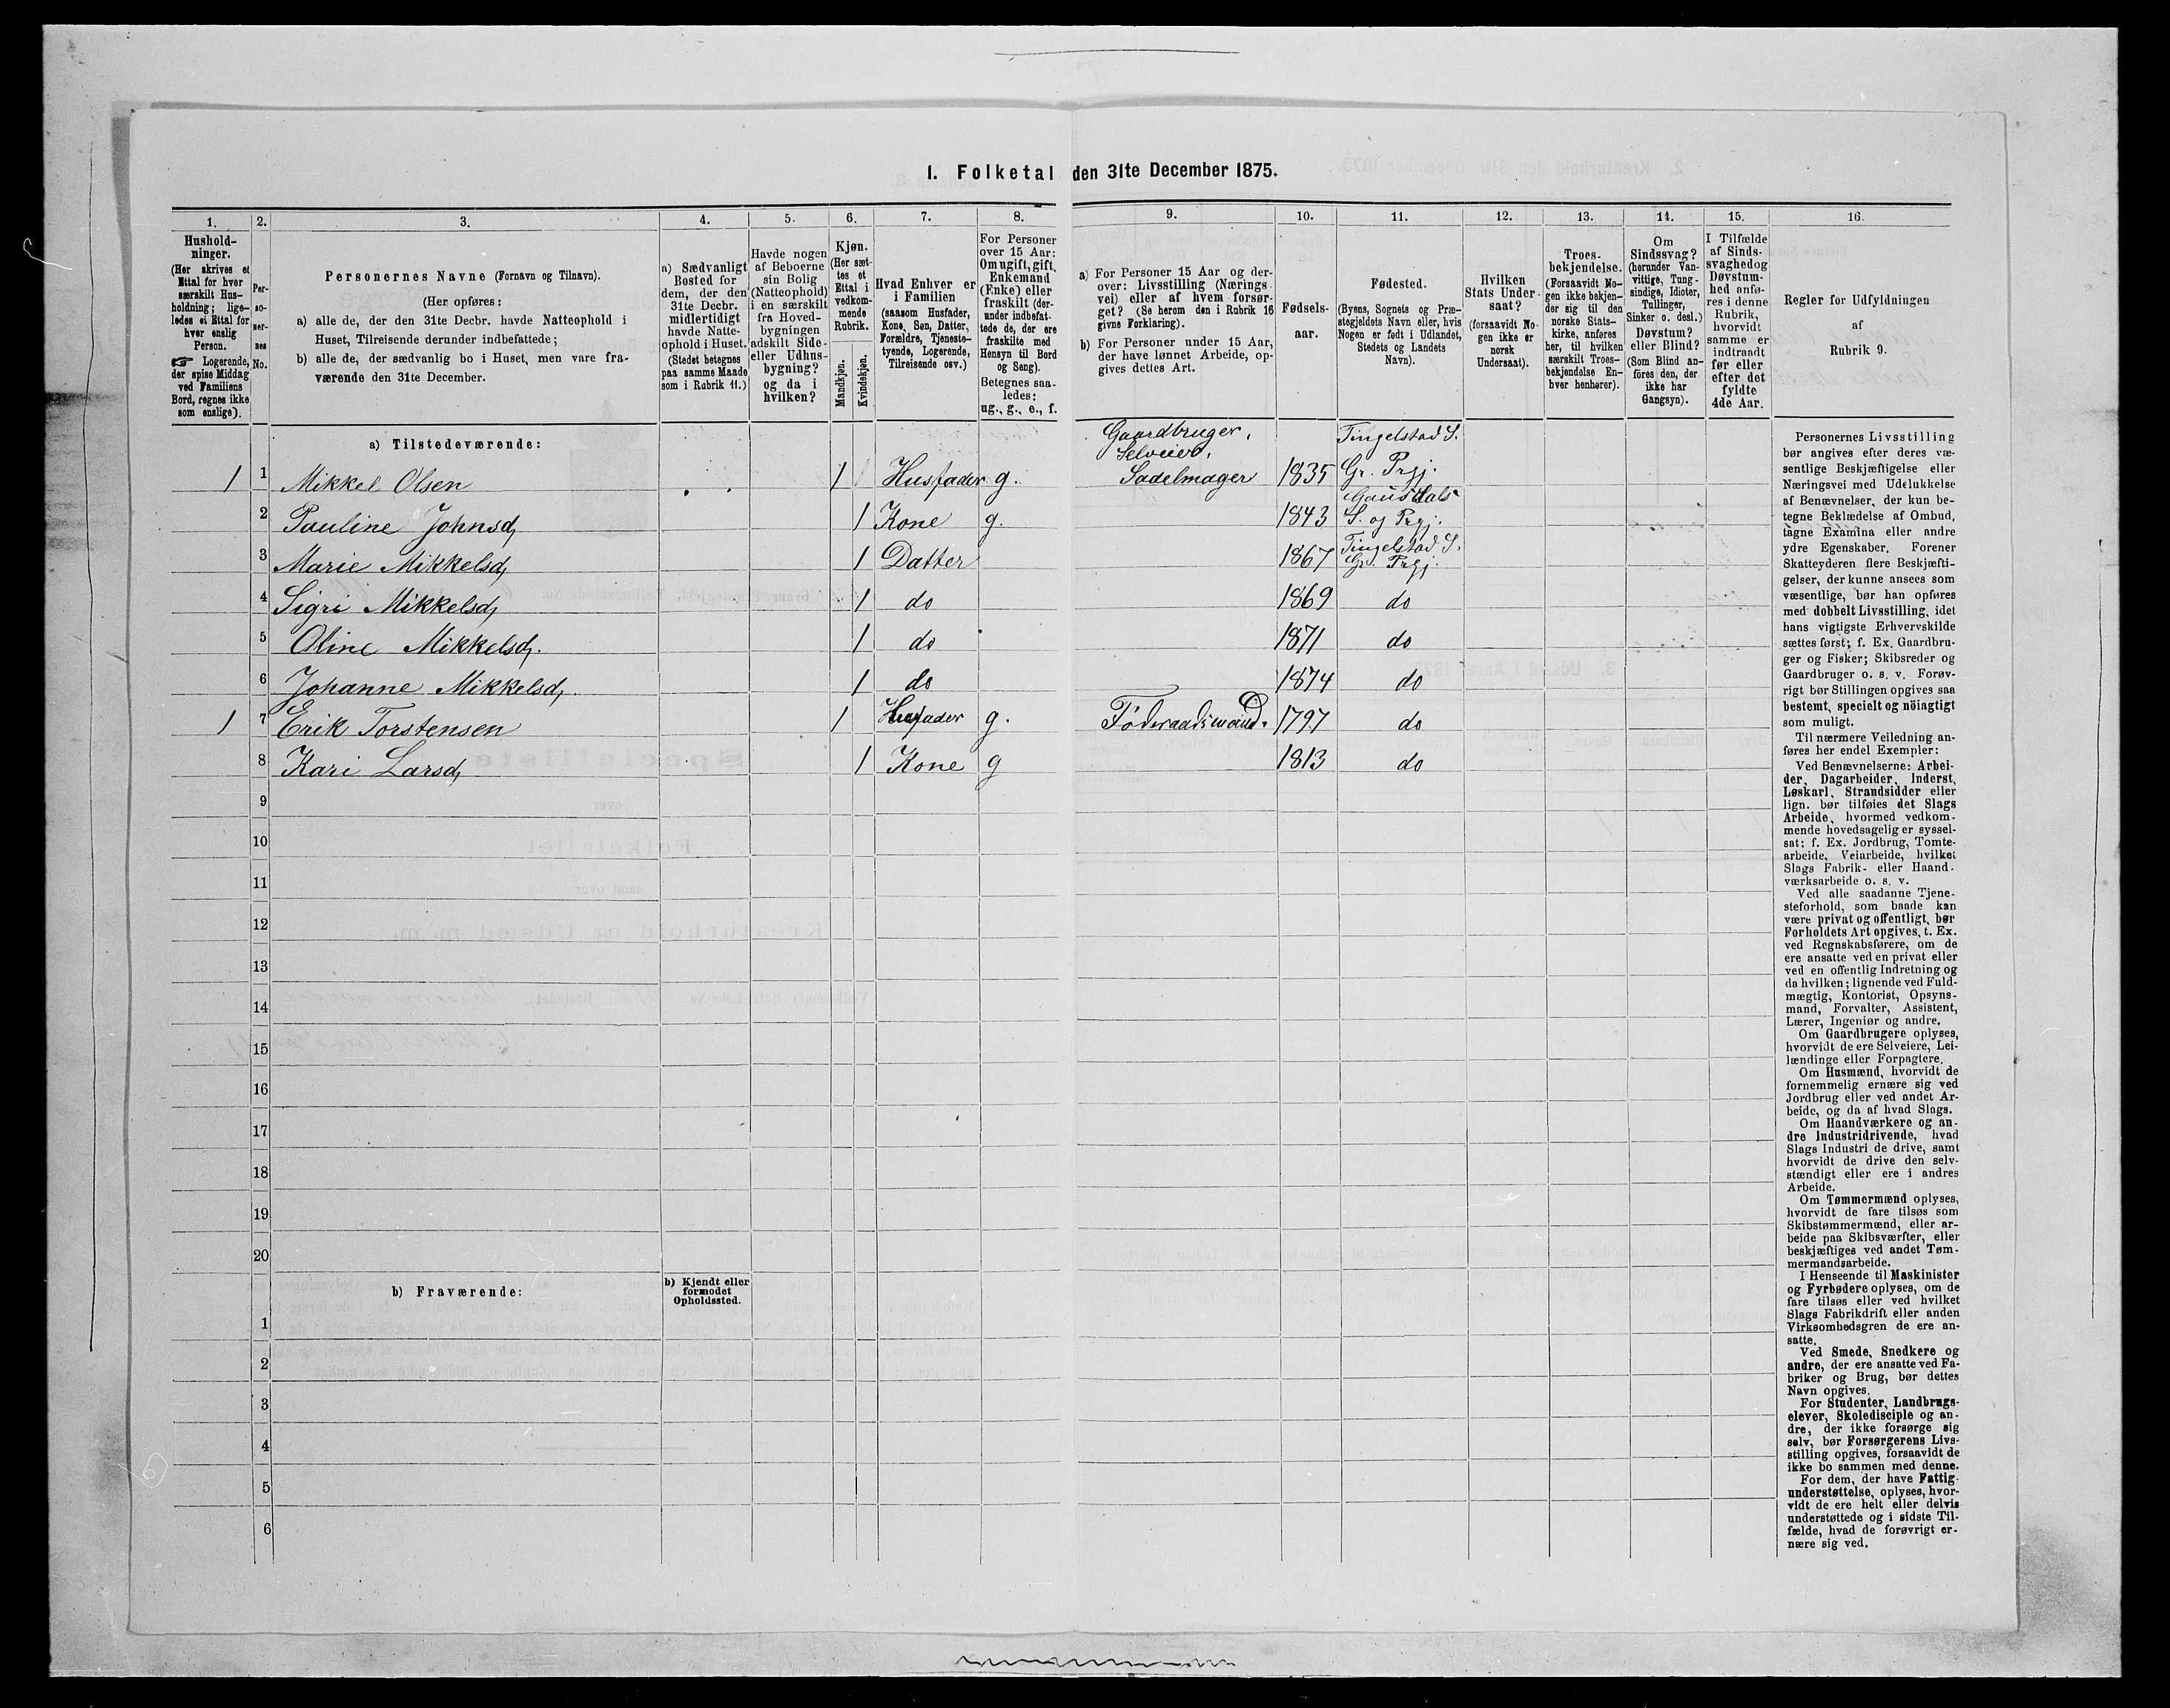 1. Folketal den 31te December 1875.
1. 2. 3. 4. 5. 6. 7. 8. 9. 10. 11. 12. 13. 14. 15. 16.
Hushold-
ninger.
(Her skrives et
Ettal for hver
særskilt Hus-
holdning; lige-
ledes et Ettal for
hver enslig
Person.
☞ Logerende,
der spise Middag
ved Familiens
Bord, regnes ikke
som enslige).
Per-
so-
ner-
nes
No.
Personernes Navne (Fornavn og Tilnavn).
(Her opføres:
a) alle de, der den 31te Decbr. havde Natteophold i
Huset, Tilreisende derunder indbefattede;
b) alle de, der sædvanlig bo i Huset, men vare fra-
værende den 31te December.
a) Sædvanligt
Bosted for
dem, der den
31te Decbr.
midlertidigt
havde Natte-
ophold i Huset.
(Stedet betegnes
paa samme Maade
som i Rubrik 11.)
Havde nogen
af Beboerne
sin Bolig
(Natteophold)
i en særskilt
fra Hoved-
bygningen
adskilt Side-
eller Udhus-
bygning?
og da i
hvilken?
Kjøn.
(Her sæt-
tes et
Ettal i
vedkom-
mende
Rubrik.
Mandkjøn.
Kvindekjøn.
Hvad Enhver er
i Familien
(saasom Husfader,
Kone, Søn, Datter,
Forældre, Tjeneste-
tyende, Logerende,
Tilreisende osv.)
For Personer
over 15 Aar:
Om ugift, gift,
Enkemand
(Enke) eller
fraskilt (der-
under indbefat-
tede de, der ere
fraskilte med
Hensyn til Bord
og Seng).
Betegnes saa-
ledes:
ug., g., e., f.
a) For Personer 15 Aar og der-
over: Livsstilling (Nærings-
vei) eller af hvem forsør-
get? (Se herom den i Rubrik 16
givne Forklaring).
b) For Personer under 15 Aar,
der have lønnet Arbeide, op-
gives dettes Art.
Fødsels-
aar.
Fødested.
(Byens, Sognets og Præ-
stegjeldets Navn eller, hvis
Nogen er født i Udlandet,
Stedets og Landets
Navn).
Hvilken
Stats Under-
saat?
(forsaavidt No-
gen ikke er
norsk
Undersaat).
Troes-
bekjendelse.
(Forsaavidt No-
gen ikke bekjen-
der sig til den
norske Stats-
kirke, anføres
her, til hvilken
særskilt Troes-
bekjendelse En-
hver henhører).
Om
Sindssvag?
(herunder Van-
vittige, Tung-
sindige, Idioter,
Tullinger,
Sinker o. desl.)
Døvstum?
eller Blind?
(Som Blind an-
føres den, der
ikke har
Gangsyn).
I Tilfælde
af Sinds-
svaghed og
Døvstum-
hed anfø-
res i denne
Rubrik,
hvorvidt
samme er
indtraadt
før eller
efter det
fyldte
4de Aar.
Regler for Udfyldningen
af
Rubrik 9.
a) Tilstedeværende:
1 1 Mikkel Olsen 1 Husfader g. Gaardbruger, Selveier, Sadelmager 1835 Tingelstad S. Gr. Prgj.
2 Pauline Johnsd. 1 Kone g. 1843 Gausdals S. og Prgj.
3 Marie Mikkelsd. 1 Datter 1867 Tingelstad S. Gr. Prgj.
4 Sigri Mikkelsd. 1 do 1869 do
5 Oline Mikkelsd. 1 do 1871 do
6 Johanne Mikkelsd. 1 do 1874 do
1 7 Erik Torstensen 1 Husfader g. Föderaadsmand. 1797 do
8 Kari Larsd. 1 Kone g 1813 do
9
10
11
12
13
14
15
16
17
18
19
20
b) Fraværende:
b) Kjendt eller
formodet
Opholdssted.
1
2
3
4
5
6
Personernes Livsstilling
bør angives efter deres væ-
sentlige Beskjæftigelse eller
Næringsvei med Udelukkelse
af Benævnelser, der kun be-
tegne Beklædelse af Ombud,
tagne Examina eller andre
ydre Egenskaber. Forener
Skatteyderen flere Beskjæfti-
gelser, der kunne ansees som
væsentlige, bør han opføres
med dobbelt Livsstilling, idet
hans vigtigste Erhvervskilde
sættes først; f. Ex. Gaardbru-
ger og Fisker; Skibsreder og
Gaardbruger o. s. v. Forøv-
rigt bør Stillingen opgives saa
bestemt, specielt og nöiagtigt
som muligt.
Til nærmere Veiledning an-
føres her endel Exempler:
Ved Benævnelserne: Arbei-
der, Dagarbeider, Inderst,
Løskarl, Strandsidder eller
lign. bør tilføies det Slags
Arbeide, hvormed vedkom-
mende hovedsagelig er syssel-
sat; f. Ex. Jordbrug, Tomte-
arbeide, Veiarbeide, hvilket
Slags Fabrik- eller Haand-
værksarbeide o. s. v.
Ved alle saadanne Tjene-
steforhold, som baade kan
være privat og offentligt, bør
Forholdets Art opgives, t. Ex.
ved Regnskabsførere, om de
ere ansatte ved en privat eller
ved en offentlig Indretning og
da hvilken; lignende ved Fuld-
mægtig, Kontorist, Opsyns-
mand, Forvalter, Assistent,
Lærer, Ingeniør og andre.
Om Gaardbrugere oplyses,
hvorvidt de ere Selveiere, Lei-
lændinge eller Forpagtere.
Om Husmænd, hvorvidt de
fornemmelig ernære sig ved
Jordbrug eller ved andet Ar-
beide, og da af hvad Slags.
Om Haandværkere og an-
dre Industridrivende, hvad
Slags Industri de drive, samt
hvorvidt de drive den selv-
stændigt eller ere i andres
Arbeide.
Om Tømmermænd oplyses,
hvorvidt de fare tilsøs som
Skibstømmermænd, eller ar-
beide paa Skibsværfter, eller
beskjæftiges ved andet Tøm-
mermandsarbeide.
I Henseende til Maskinister
og Fyrbødere oplyses, om de
fare tilsøs eller ved hvilket
Slags Fabrikdrift eller anden
Virksomhedsgren de ere an-
satte.
Ved Smede, Snedkere og
andre, der ere ansatte ved Fa-
briker og Brug, bør dettes
Navn opgives.
For Studenter, Landbrugs-
elever, Skoledisciple og an-
dre, der ikke forsørge sig
selv, bør Forsørgerens Livs-
stilling opgives, forsaavidt de
ikke bo sammen med denne.
For dem, der have Fattig-
understøttelse, oplyses, hvor-
vidt de ere helt eller delvis
understøttede og i sidste Til-
fælde, hvad de forøvrigt er-
nære sig ved.